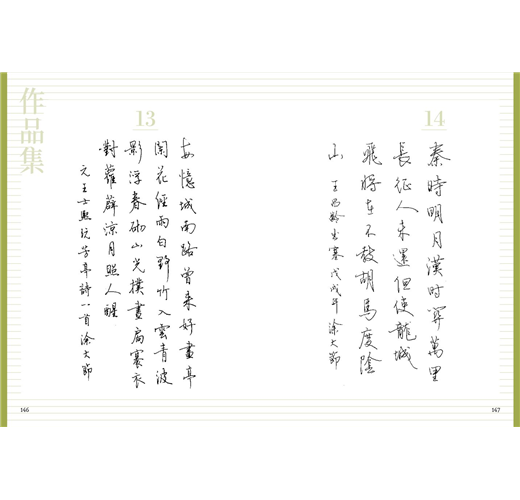 作品集
13
每憶城南路曾來好畫亭
闌花經雨白野竹入雲青波
影浮春砌山光撲畫扃褰衣
對蘿薜涼月照人醒
元王士熙玩芳亭詩一首涂大節
146
14
秦時明月漢時關萬里
長征人未還但使龍城
飛將在不教胡馬度陰
山 王昌齡出塞戊戌年涂大節
147